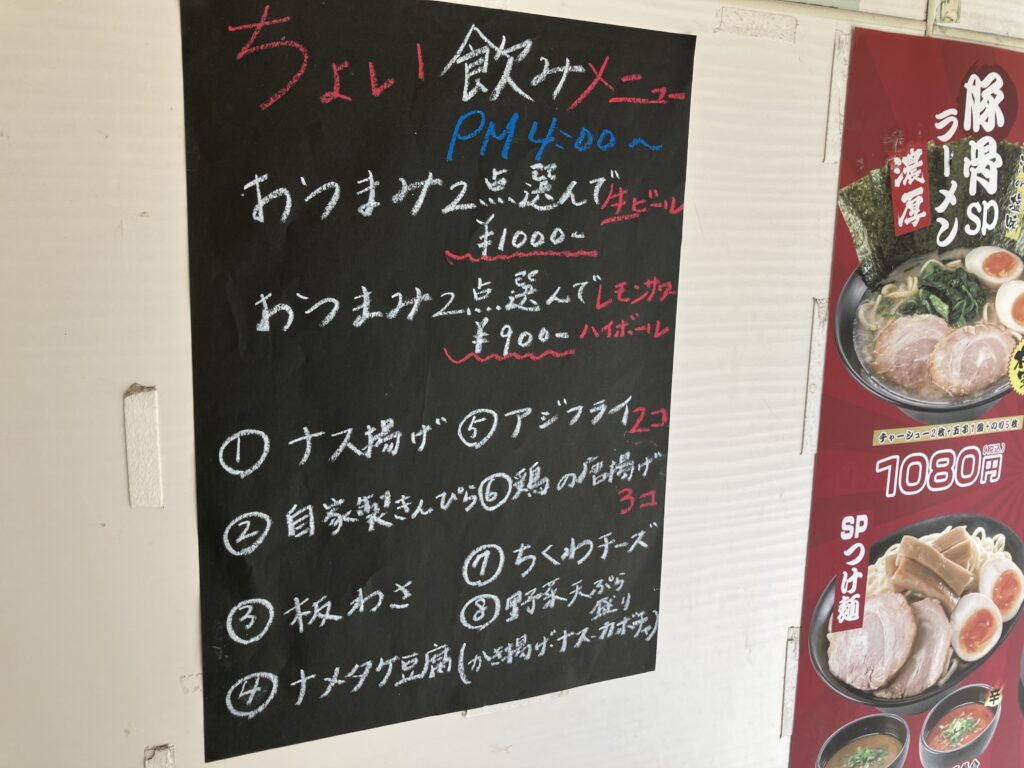 ちょい飲みメニュー
PM 4:00～
おつまみ2点選んで生ビール
¥1000-
おつまみ2点選んでレモンサワー
¥900- ハイボール
① ナス揚げ
② 自家製きんぴら
③ 板わさ
④ ナメタケ豆腐
⑤ アジフライ 2コ
⑥ 鶏の唐揚げ
3コ
⑦ ちくわチーズ
⑧ 野菜天ぷら
盛り
(かき揚げ・ナス・カボチャ)
豚骨SP
ラーメン
濃厚
チャーシュー2枚+玉子1個+のり5枚
1080円
(税込)
SPつけ麺
辛